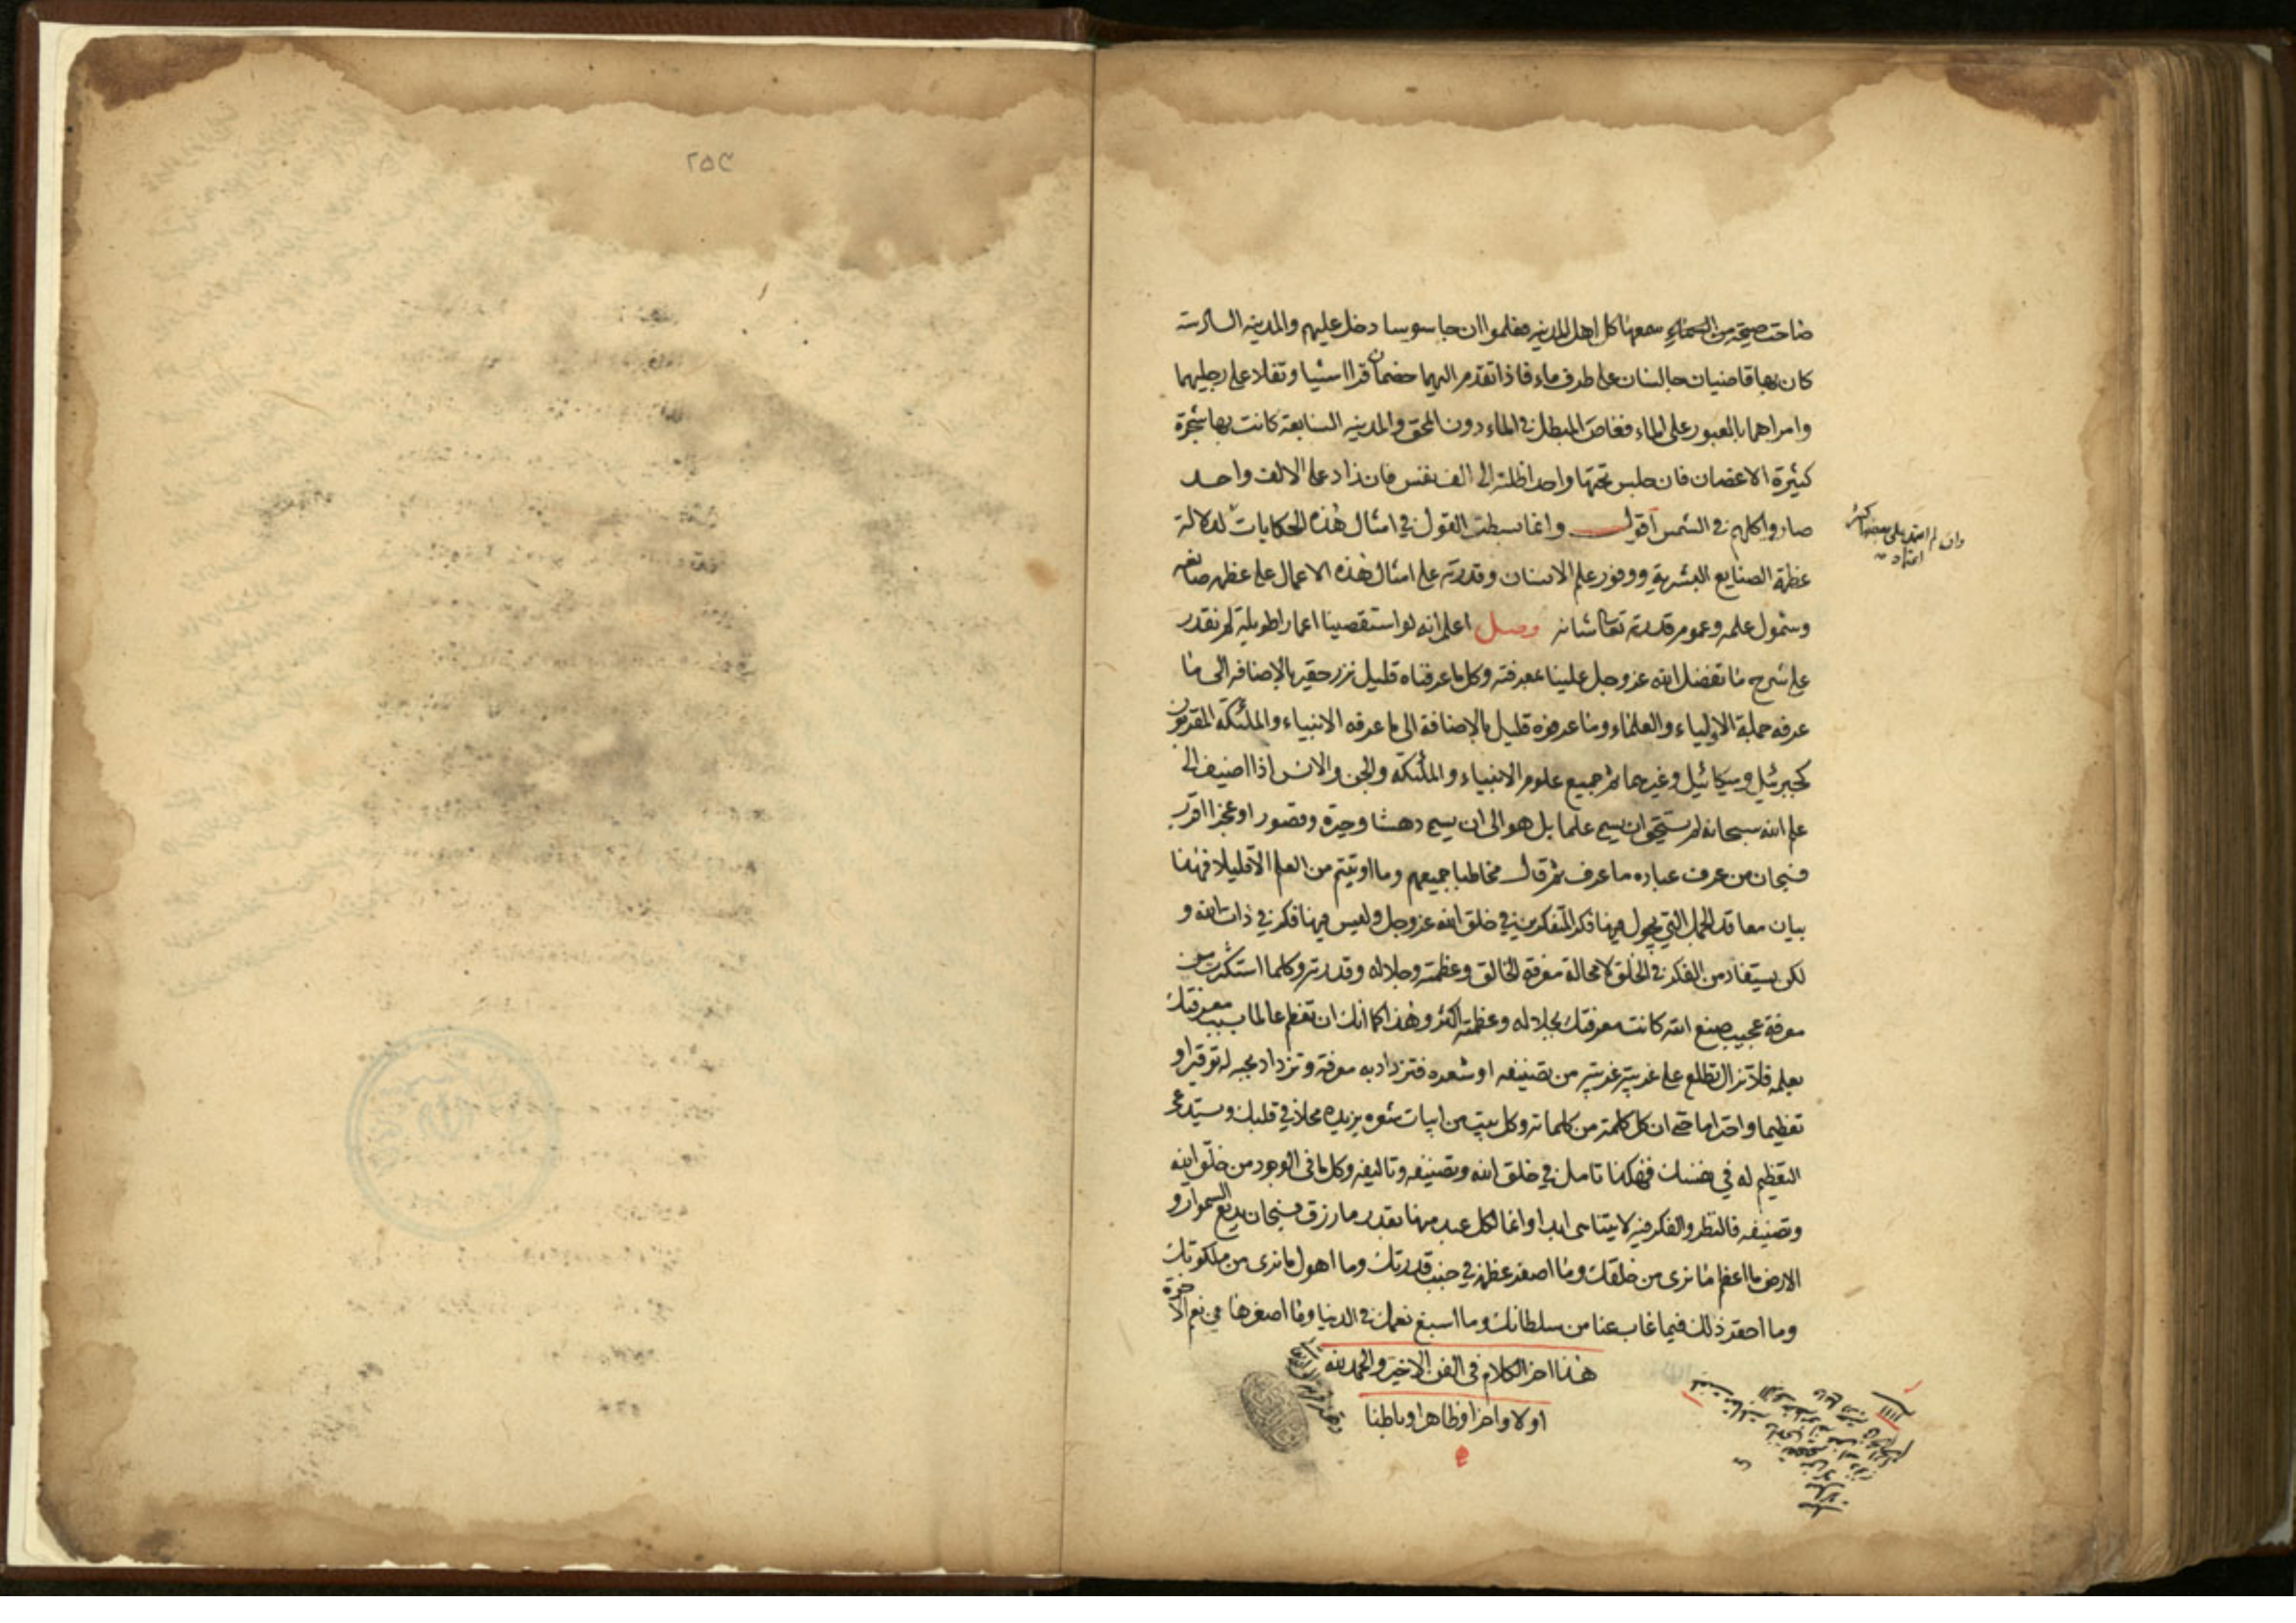 صاحت صيحة من السماء سمعها كل اهل المدينه فعلموا ان جاسوسا دخل عليهم والمدينه السادسة
كان بها قاضيان جالسان على طرف ماء فاذا تقدم اليهما خصمان قرا اشيا وتفلا على رجليهما
وامراهما بالعبور على الماء فغاص المبطل في الماء دون المحق والمدينه السابعة كانت بها شجرة
كثيرة الاغصان فان جلس تحتها واحد اظلته الى الف نفس فان زاد على الالف واحد
صاروا كلهم في الشمس اقول وانما بسطت القول في امثال هذه الحكايات لدلالة
عظمة الصنايع البشرية ووفور علم الانسان وقدرته على امثال هذه الاعمال على عظم صانعه
وشمول علمه وعموم قدرته تعالى شانه وصل اعلم انه لو استقصينا اعمارا طويلة لم نقدر
على شرح ما تفضل الله عز وجل علينا بمعرفته وكل ما عرفناه قليل نزر حقير بالاضافه الى ما
عرفه جملة الاولياء والعلماء وما عرفوه قليل بالاضافة الى ما عرفه الانبياء والملئكة المقربون
كجبرئيل وميكائيل وغيرهما ثم جميع علوم الانبياء والملئكة والجن والانس اذا اضيف الى
علم الله سبحانه لم يستحق ان يسمى علما بل هو الى ان يسمى دهشا وحيرة وقصورا وعجزا اقرب
فسبحان من عرف عباده ما عرف ثم قال مخاطبا جميعهم وما اوتيتم من العلم الا قليلا فهذا
بيان معاقد الجمل التي يجول فيها فكر المتفكرين في خلق الله عز وجل وليس فيها فكر في ذات الله و
لكن يستفاد من الفكر في الخلق لا محالة معرفة الخالق وعظمته وجلاله وقدرته وكلما استكثرت من
معرفة عجيب صنع الله كانت معرفتك بجلاله وعظمته اكثر وهذا كما انك ان تعظم عالما بسبب معرفتك
بعلمه فلا تزال تطلع على غريبة غريبة من تصنيفه او شعره فتزداد به معرفة وتزداد بحبه له توقيرا و
تعظيما واحتراما حتى ان كل كلمة من كلماته وكل بيت من ابيات شعره يزيده محلا في قلبك ويستدعى
التعظيم له في نفسك فهكذا تامل في خلق الله وتصنيفه وتاليفه وكل ما في الوجود من خلق الله
وتصنيفه فالنظر والفكر فيه لا يتناهى ابدا وانما لكل عبد منها بقدر ما رزق فسبحان بديع السموات و
الارض ما اعظم ما نرى من خلقك وما اصغر عظمه في جنب قدرتك وما اهول ما نرى من ملكوتك
وما احقر ذلك فيما غاب عنا من سلطانك وما اسبغ نعمك في الدنيا وما اصغرها في نعم الاخرة
هذا اخر الكلام في الفن الاخير والحمد لله
اولا واخرا وظاهرا وباطنا
۲۵۳